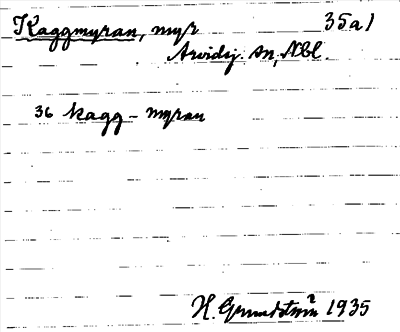 Kaggmyran, myr 35a1
Arvidsj. sn, Nbl.
36 kagg-myran
H. Grundström 1935